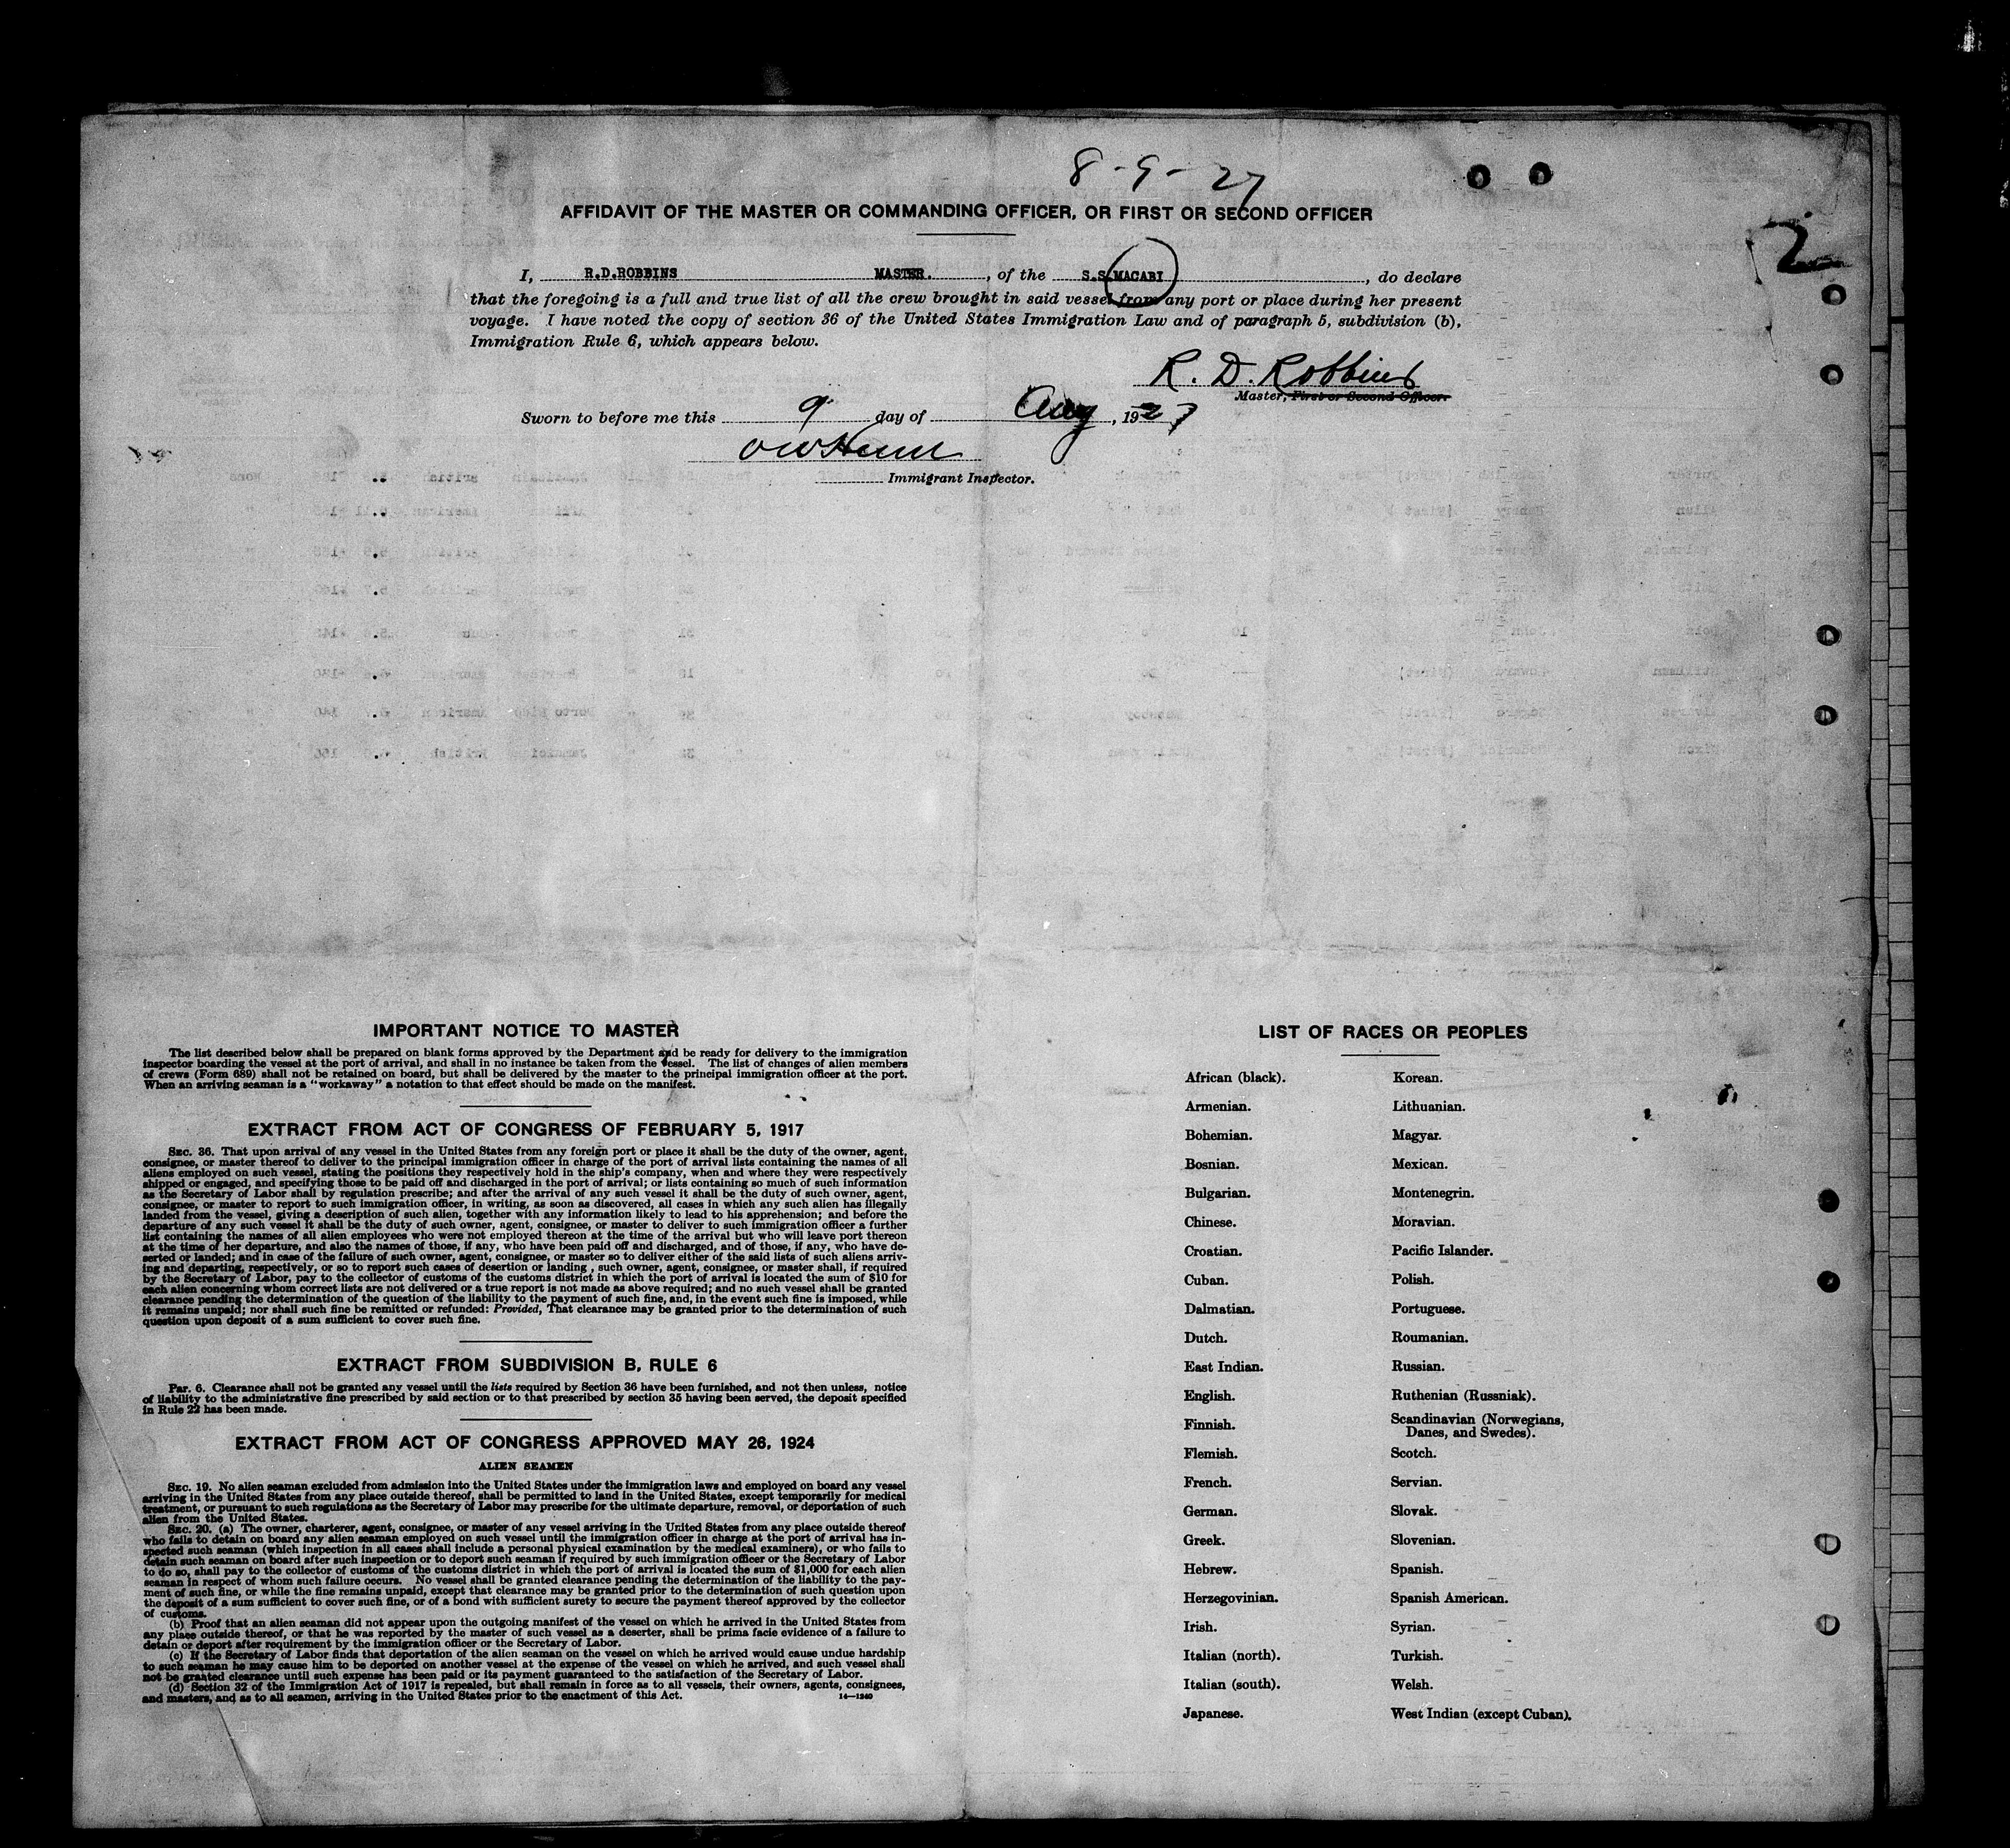 8-9-27
2
AFFIDAVIT OF THE MASTER OR COMMANDING OFFICER, OR FIRST OR SECOND OFFICER
I, R.D.ROBBINS MASTER. , of the S.S.MACABI , do declare
that the foregoing is a full and true list of all the crew brought in said vessel from any port or place during her present
voyage. I have noted the copy of section 36 of the United States Immigration Law and of paragraph 5, subdivision (b),
Immigration Rule 6, which appears below.
R. D. Robbins
Master, First or Second Officer.
Sworn to before me this 9 day of Aug , 1927
Immigrant Inspector.
IMPORTANT NOTICE TO MASTER
The list described below shall be prepared on blank forms approved by the Department and be ready for delivery to the immigration
inspector boarding the vessel at the port of arrival, and shall in no instance be taken from the vessel. The list of changes of alien members
of crews (Form 689) shall not be retained on board, but shall be delivered by the master to the principal immigration officer at the port.
When an arriving seaman is a "workaway" a notation to that effect should be made on the manifest.
EXTRACT FROM ACT OF CONGRESS OF FEBRUARY 5, 1917
SEC. 36. That upon arrival of any vessel in the United States from any foreign port or place it shall be the duty of the owner, agent,
consignee, or master thereof to deliver to the principal immigration officer in charge of the port of arrival lists containing the names of all
aliens employed on such vessel, stating the positions they respectively hold in the ship's company, when and where they were respectively
shipped or engaged, and specifying those to be paid off and discharged in the port of arrival; or lists containing so much of such information
as the Secretary of Labor shall by regulation prescribe; and after the arrival of any such vessel it shall be the duty of such owner, agent,
consignee, or master to report to such immigration officer, in writing, as soon as discovered, all cases in which any such alien has illegally
landed from the vessel, giving a description of such alien, together with any information likely to lead to his apprehension; and before the
departure of any such vessel it shall be the duty of such owner, agent, consignee, or master to deliver to such immigration officer a further
list containing the names of all alien employees who were not employed thereon at the time of the arrival but who will leave port thereon
at the time of her departure, and also the names of those, if any, who have been paid off and discharged, and of those, if any, who have de-
serted or landed; and in case of the failure of such owner, agent, consignee, or master so to deliver either of the said lists of such aliens arriv-
ing and departing, respectively, or so to report such cases of desertion or landing , such owner, agent, consignee, or master shall, if required
by the Secretary of Labor, pay to the collector of customs of the customs district in which the port of arrival is located the sum of $10 for
each alien concerning whom correct lists are not delivered or a true report is not made as above required; and no such vessel shall be granted
clearance pending the determination of the question of the liability to the payment of such fine, and, in the event such fine is imposed, while
it remains unpaid; nor shall such fine be remitted or refunded: Provided, That clearance may be granted prior to the determination of such
question upon deposit of a sum sufficient to cover such fine.
EXTRACT FROM SUBDIVISION B, RULE 6
Par. 6. Clearance shall not be granted any vessel until the lists required by Section 36 have been furnished, and not then unless, notice
of liability to the administrative fine prescribed by said section or to that prescribed by section 35 having been served, the deposit specified
in Rule 22 has been made.
EXTRACT FROM ACT OF CONGRESS APPROVED MAY 26, 1924
ALIEN SEAMEN
SEC. 19. No alien seaman excluded from admission into the United States under the immigration laws and employed on board any vessel
arriving in the United States from any place outside thereof, shall be permitted to land in the United States, except temporarily for medical
treatment, or pursuant to such regulations as the Secretary of Labor may prescribe for the ultimate departure, removal, or deportation of such
alien from the United States.
SEC. 20. (a) The owner, charterer, agent, consignee, or master of any vessel arriving in the United States from any place outside thereof
who fails to detain on board any alien seaman employed on such vessel until the immigration officer in charge at the port of arrival has in-
spected such seaman (which inspection in all cases shall include a personal physical examination by the medical examiners), or who fails to
detain such seaman on board after such inspection or to deport such seaman if required by such immigration officer or the Secretary of Labor
to do so, shall pay to the collector of customs of the customs district in which the port of arrival is located the sum of $1,000 for each alien
seaman in respect of whom such failure occurs. No vessel shall be granted clearance pending the determination of the liability to the pay-
ment of such fine, or while the fine remains unpaid, except that clearance may be granted prior to the determination of such question upon
the deposit of a sum sufficient to cover such fine, or of a bond with sufficient surety to secure the payment thereof approved by the collector
of customs.
(b) Proof that an alien seaman did not appear upon the outgoing manifest of the vessel on which he arrived in the United States from
any place outside thereof, or that he was reported by the master of such vessel as a deserter, shall be prima facie evidence of a failure to
detain or deport after requirement by the immigration officer or the Secretary of Labor.
(c) If the Secretary of Labor finds that deportation of the alien seaman on the vessel on which he arrived would cause undue hardship
to such seaman he may cause him to be deported on another vessel at the expense of the vessel on which he arrived, and such vessel shall
not be granted clearance until such expense has been paid or its payment guaranteed to the satisfaction of the Secretary of Labor.
(d) Section 32 of the Immigration Act of 1917 is repealed, but shall remain in force as to all vessels, their owners, agents, consignees,
and masters, and as to all seamen, arriving in the United States prior to the enactment of this Act. 14—1240
LIST OF RACES OR PEOPLES
African (black). Korean.
Armenian. Lithuanian.
Bohemian. Magyar.
Bosnian. Mexican.
Bulgarian. Montenegrin.
Chinese. Moravian.
Croatian. Pacific Islander.
Cuban. Polish.
Dalmatian. Portuguese.
Dutch. Roumanian.
East Indian. Russian.
English. Ruthenian (Russniak).
Finnish. Scandinavian (Norwegians,
Danes, and Swedes).
Flemish. Scotch.
French. Servian.
German. Slovak.
Greek. Slovenian.
Hebrew. Spanish.
Herzegovinian. Spanish American.
Irish. Syrian.
Italian (north). Turkish.
Italian (south). Welsh.
Japanese. West Indian (except Cuban).